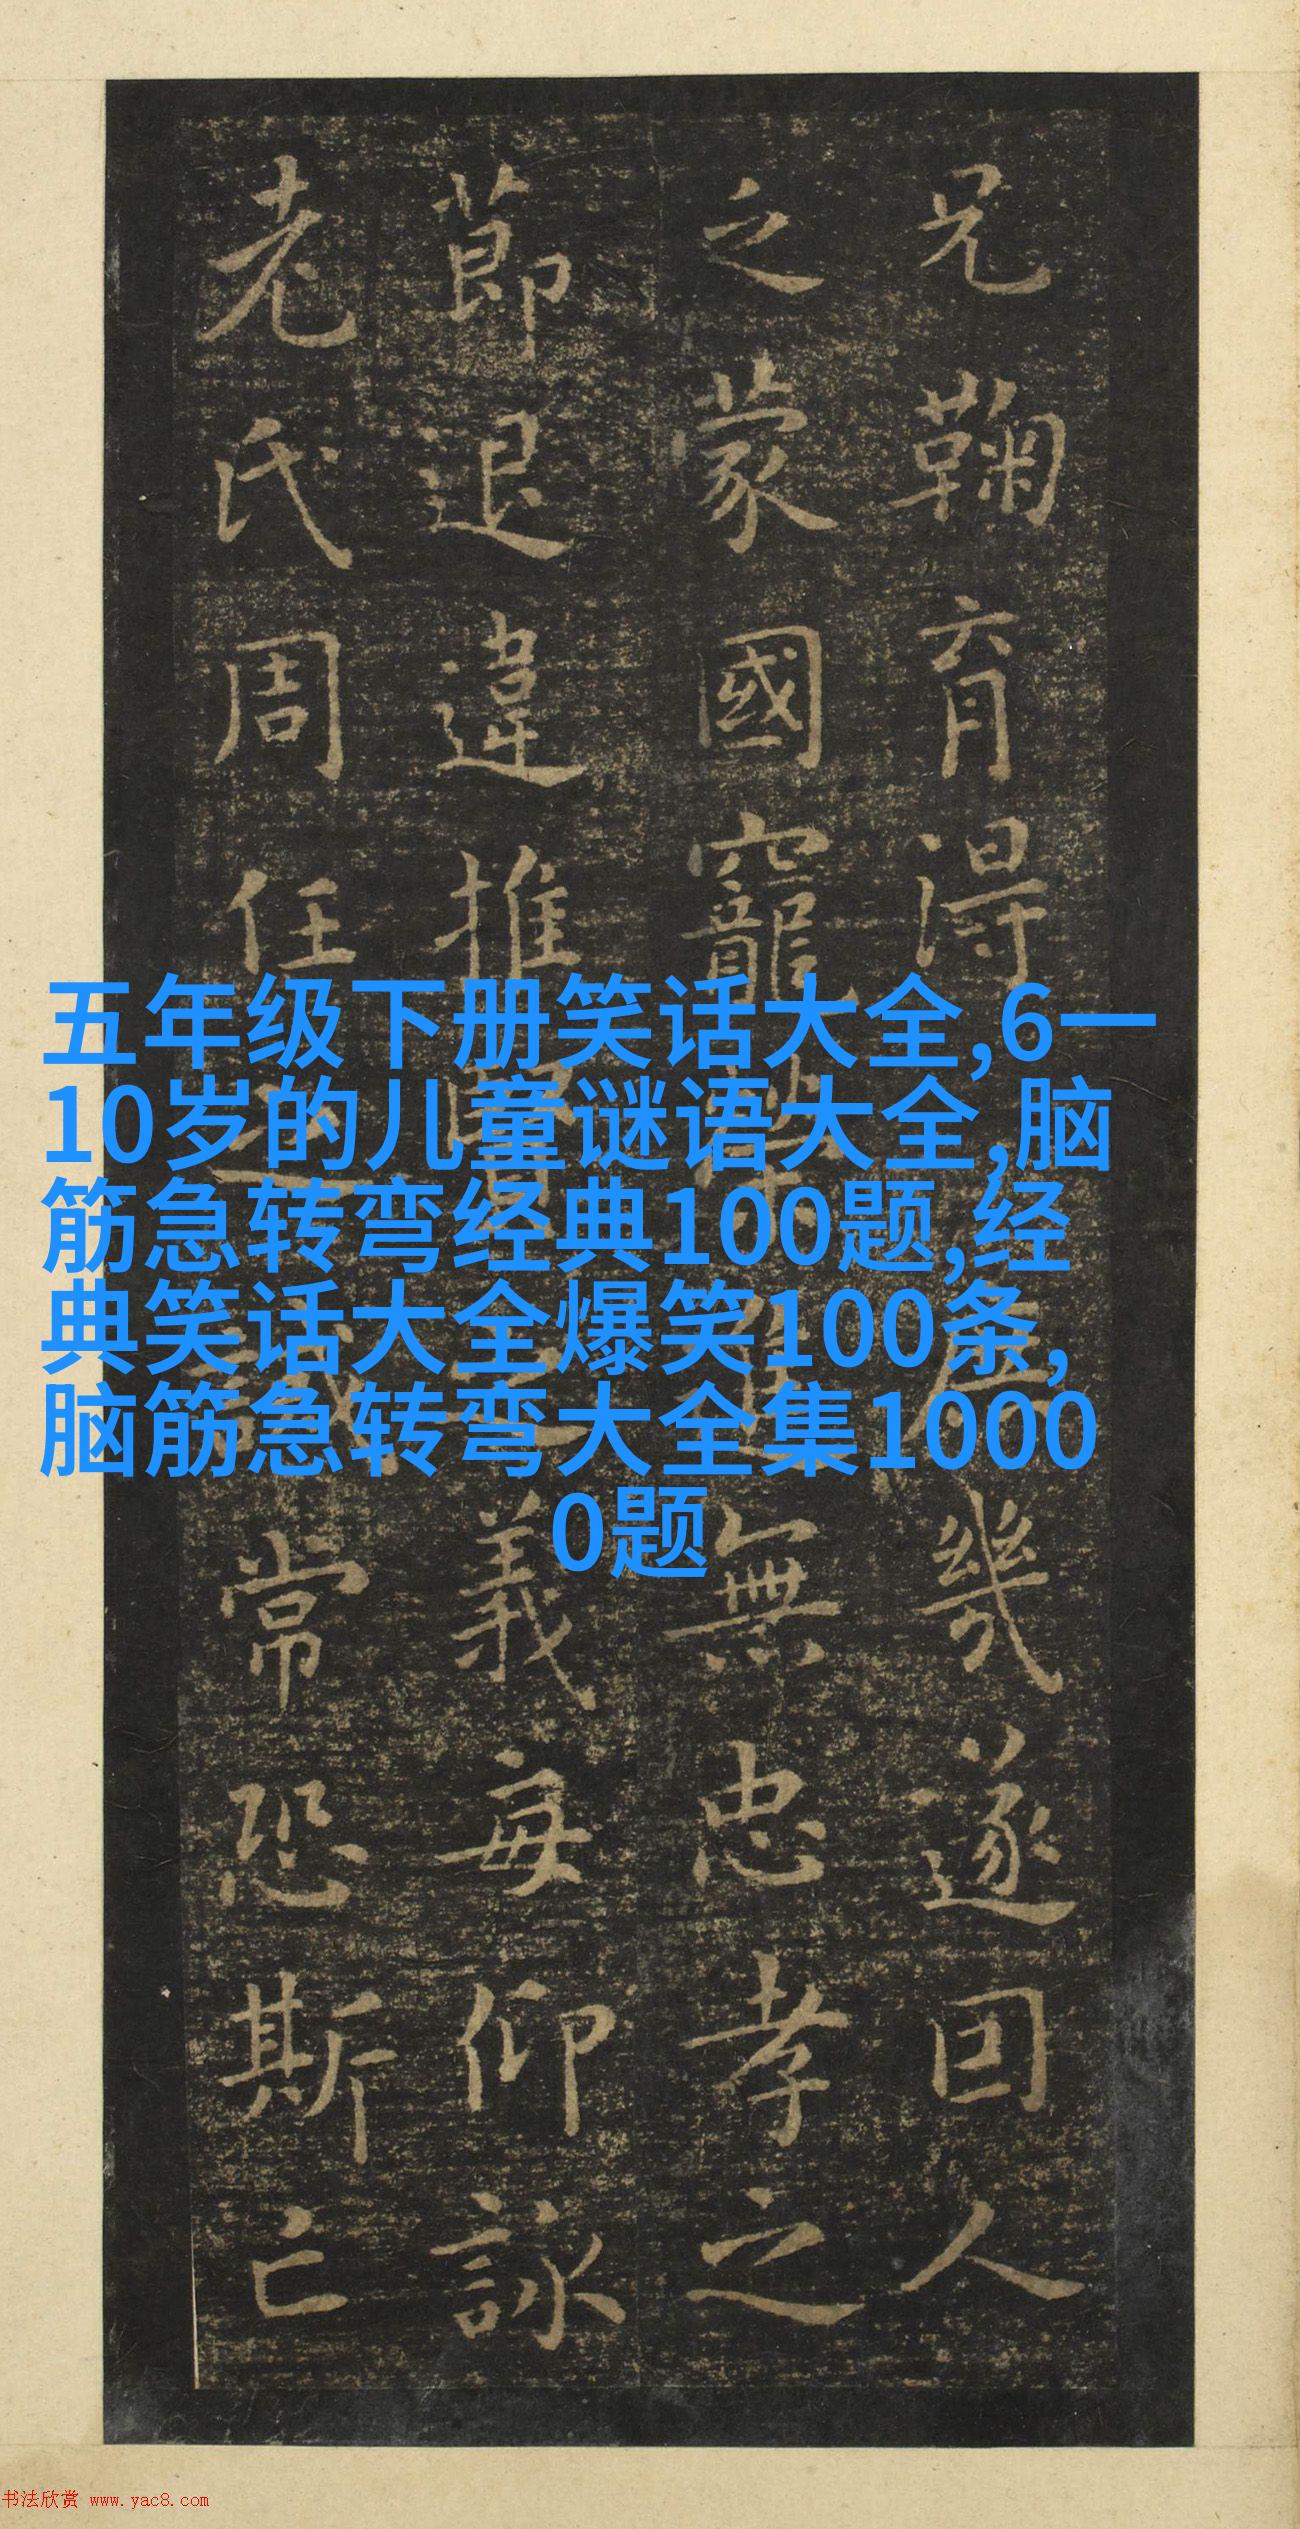 兄鞠育得庶幾遂囙人
之蒙國寵榮進無忠孝之
莭退違推賢之義每仰詠
老氏周任之誡常恐斯亡
五年级下册笑话大全,6一
10岁的儿童谜语大全,脑
筋急转弯经典100题,经
典笑话大全爆笑100条,
脑筋急转弯大全集1000
0题
书法欣赏 www.yac8.com